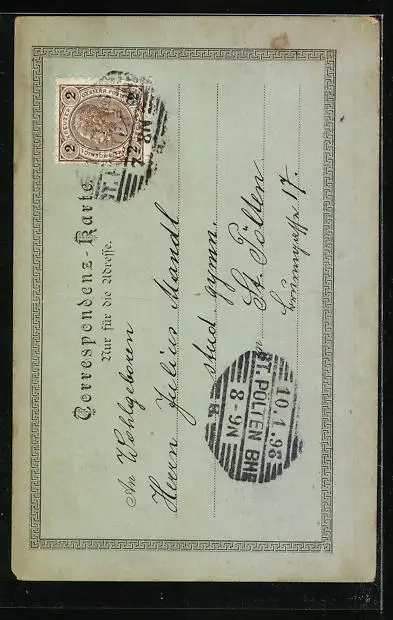 Correspondenz-Karte
Nur für die Adresse.
An Wohlgeboren
Herrn Julius Mandl
stud. gymn.
in St. Pölten
17.
2 KREUZER 2
ST. PÖLTEN BHF
10.1.98
8-9N